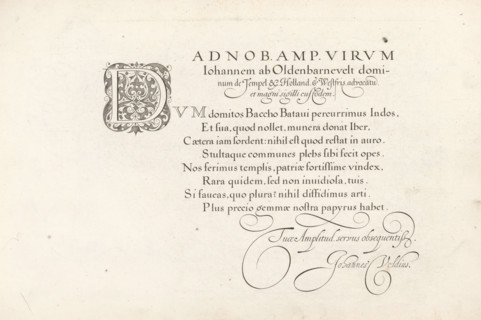 AD NOB. AMP. VIRVM
Iohannem ab Oldenbarnevelt domi-
num de Tempel &c. Holland. & Westfris advocatū
et magni sigilli custodem.
DVM domitos Baccho Bataui percurrimus Indos,
Et sua, quod nollet, munera donat Iber,
Cætera iam sordent: nihil est quod restat in auro.
Stultaque communes plebs sibi fecit opes.
Nos ferimus templis, patriæ fortissime vindex,
Rara quidem, sed non inuidiosa, tuis.
Si faueas, quo plura? nihil diffidimus arti.
Plus precio gemmæ nostra papyrus habet.
Tuæ Amplitud. servus obsequentiss.
Johannes Veldius.